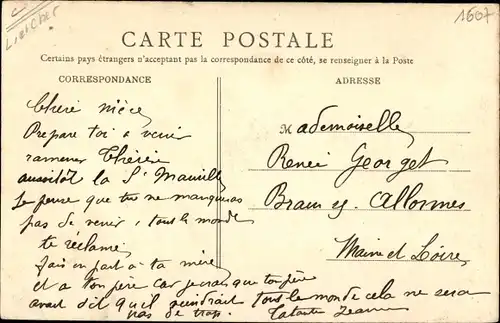 Loir et Cher
1607
CARTE POSTALE
Certains pays étrangers n'acceptant pas la correspondance de ce côté, se renseigner à la Poste
CORRESPONDANCE
Chère nièce
Prepare toi a venir
ramener Thérèse
aussitôt la St Maurille
Je pense que tu ne manqueras
pas de venir, tout le monde
te réclame
fais en part a ta mère
et a ton père car je crois que ton père
avait dit qu'il viendrait tous le monde cela ne sera
pas de trop. Ta tante Jeanne
ADRESSE
Mademoiselle
Renée Georget
Brain s/ Allonnes
Maine et Loire